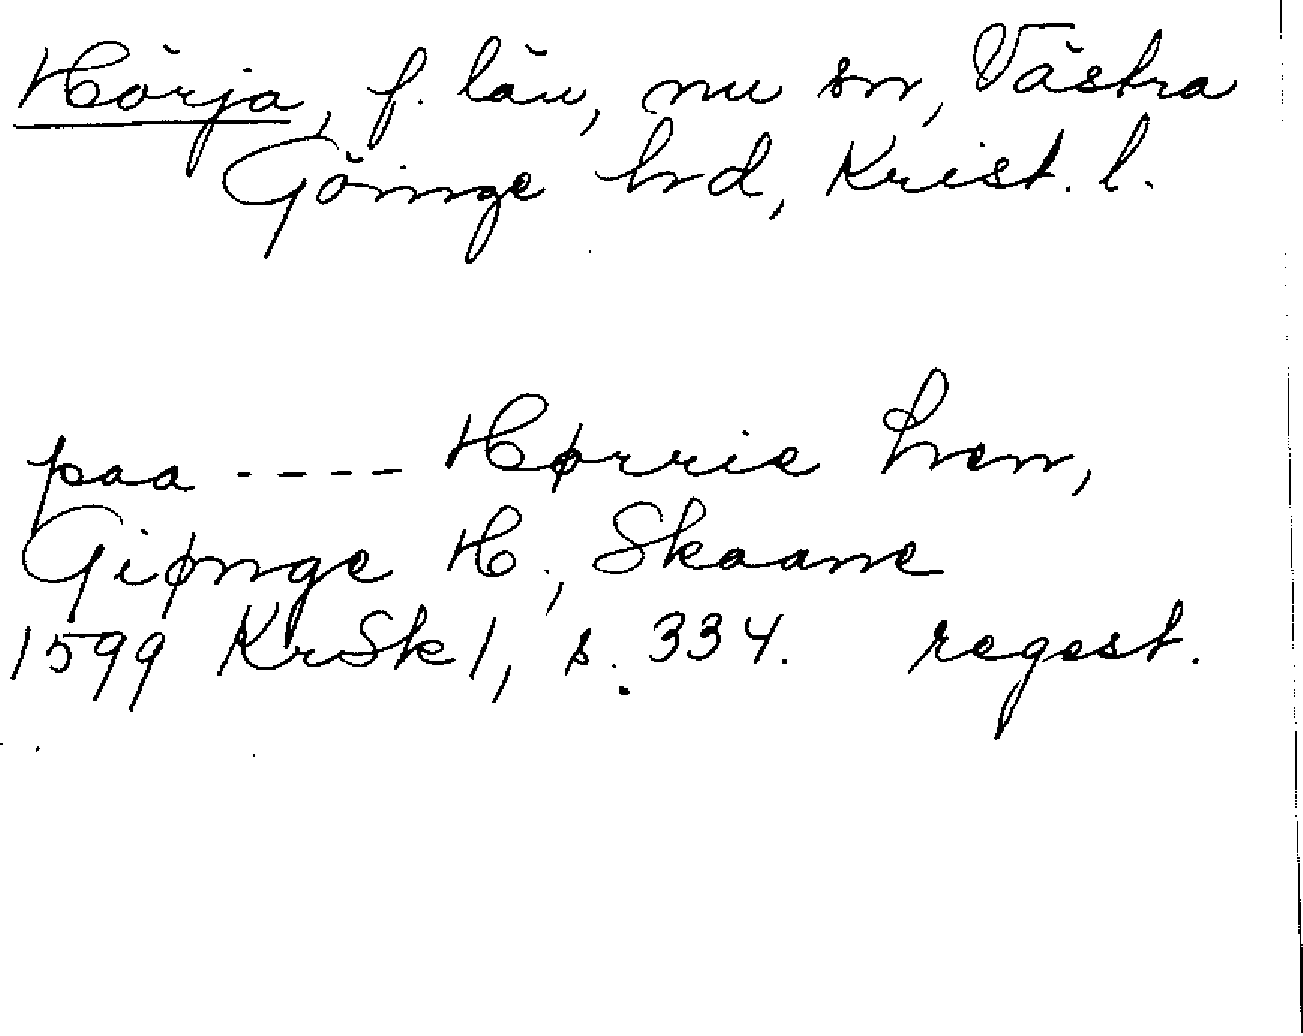 Hörja, f. län, nu sn, Västra
Göinge hrd, Krist. l.
paa ---- Hørrie Lren,
Giønge H., Skaane
1599 KrSk 1, s. 334. regest.